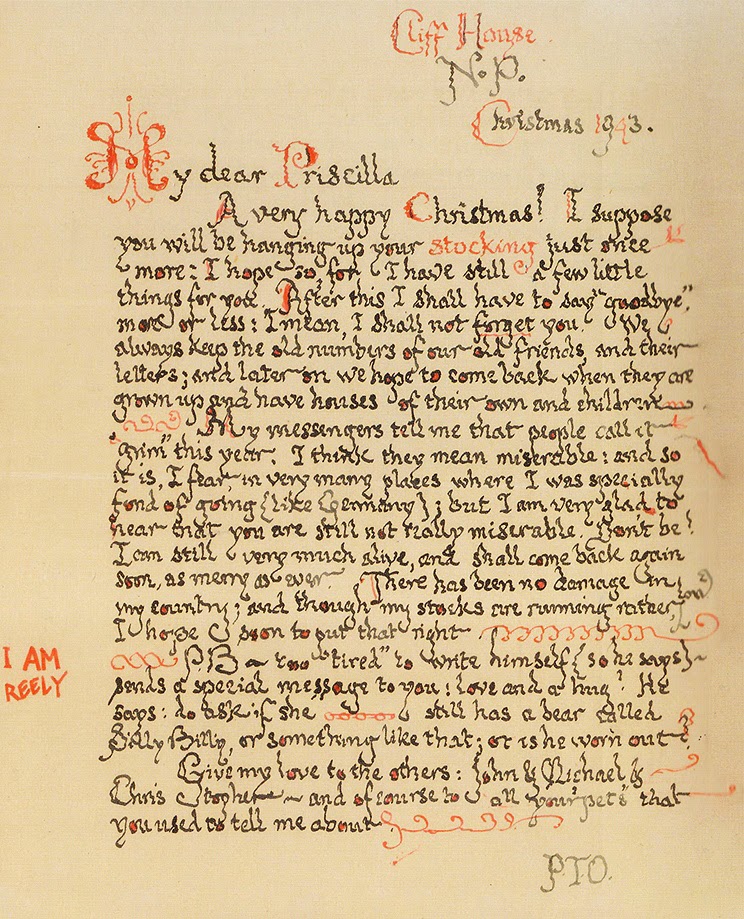 Cliff House
N.P.
Christmas 1943.
My dear Priscilla
A very happy Christmas! I suppose
you will be hanging up your stocking just once
more: I hope so for I have still a few little
things for you. After this I shall have to say "goodbye",
more or less: I mean, I shall not forget you. We
always keep the old numbers of our old friends, and their
letters; and later on we hope to come back when they are
grown up and have houses of their own and children
My messengers tell me that people call it
"grim" this year. I think they mean miserable: and so
it is, I fear in very many places where I was specially
fond of going (like Germany); but I am very glad to
hear that you are still not really miserable. Don't be!
I am still very much alive, and shall come back again
soon, as merry as ever. There has been no damage in
my country; and though my stocks are running rather low
I hope soon to put that right
I AM
REELY
P.B – too "tired" to write himself (so he says) –
sends a special message to you: love and a hug! He
says: do ask if she still has a bear called
Silly Billy, or something like that; or is he worn out?
Give my love to the others: John & Michael &
Christopher – and of course to all your "pets" that
you used to tell me about
PTO.